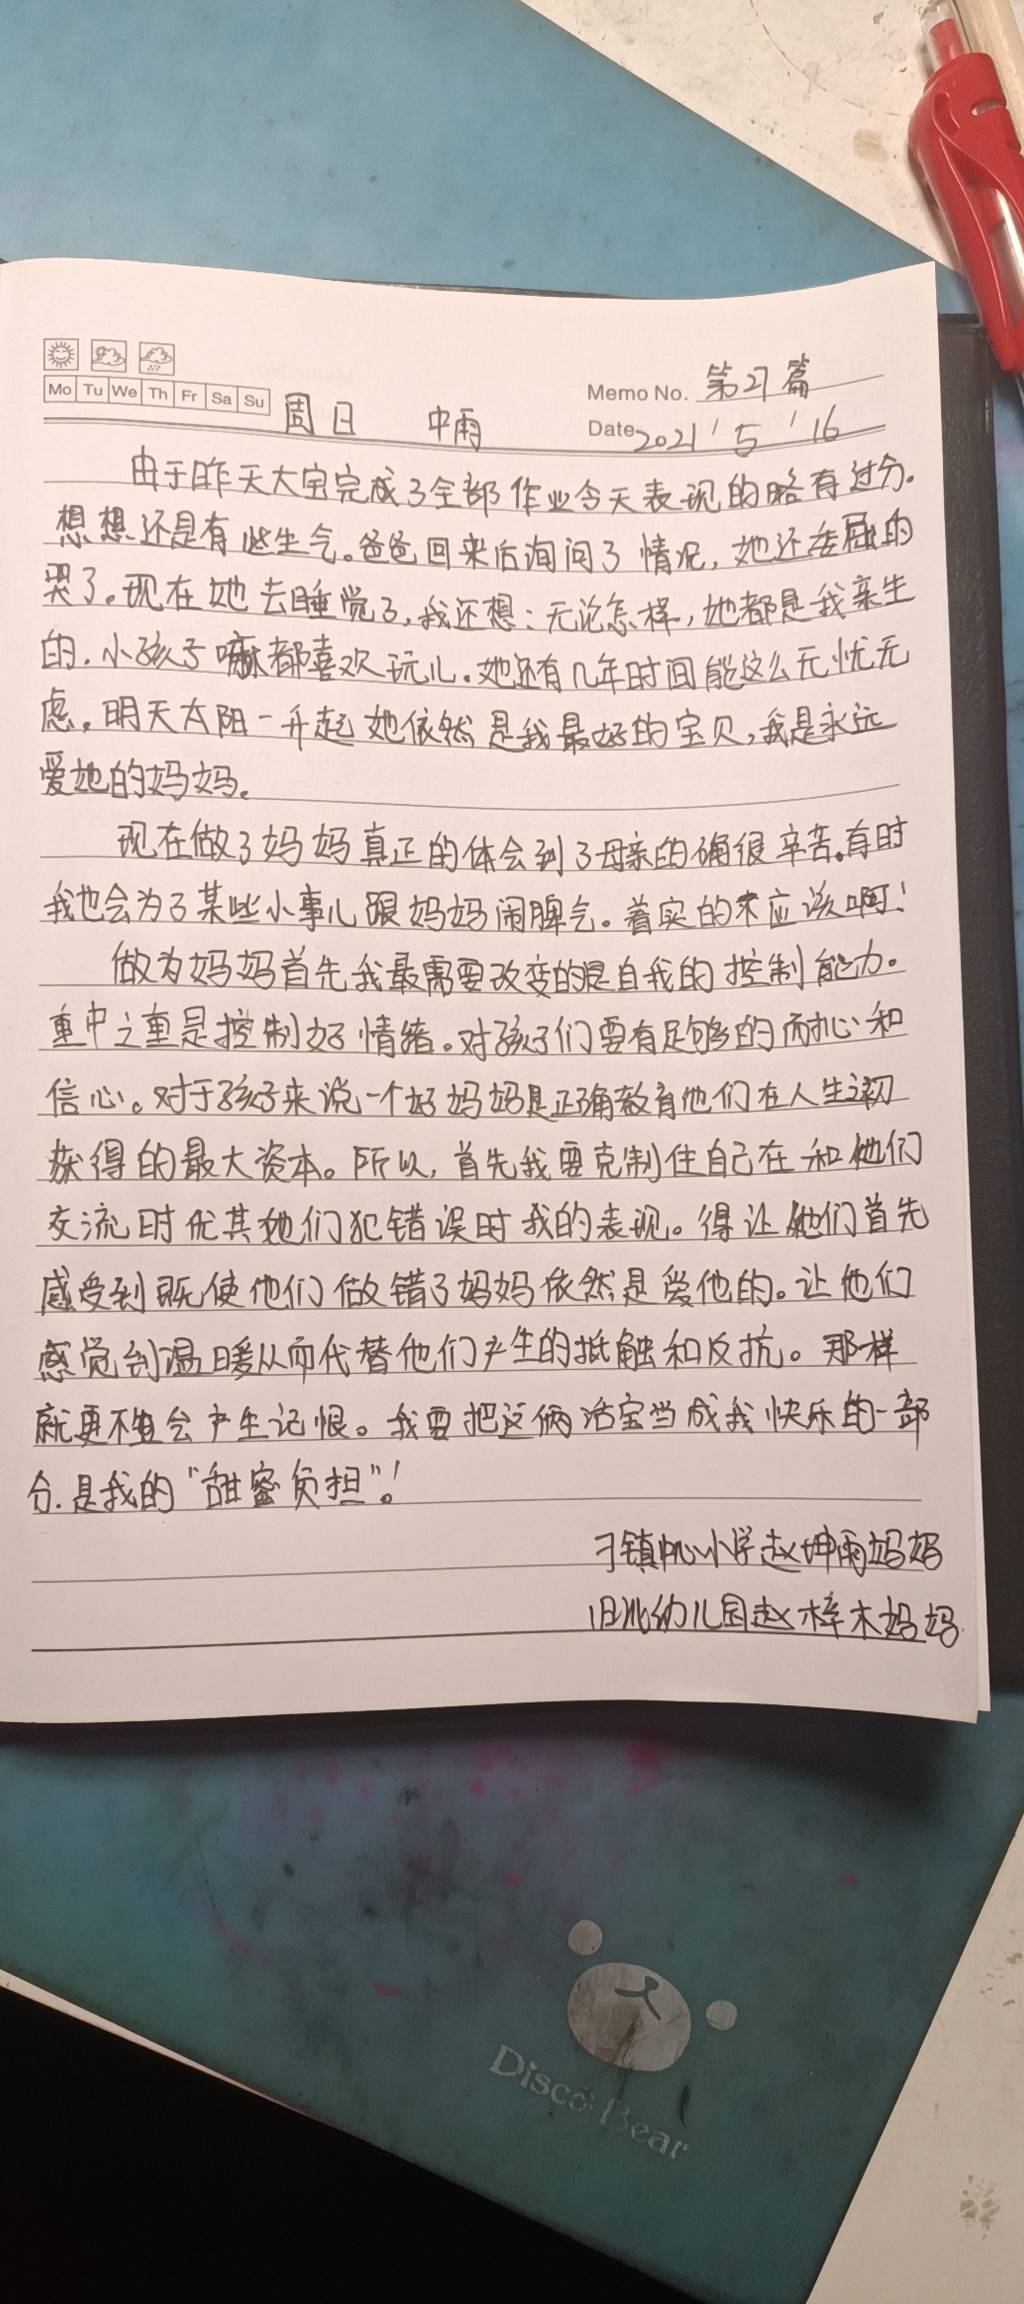 Mo Tu We Th Fr Sa Su
周日 中雨
Memo No. 第27篇
Date 2021 ' 5 ' 16
由于昨天大宝完成了全部作业今天表现的略有过分。
想想还是有些生气。爸爸回来后询问了情况，她还委屈的
哭了。现在她去睡觉了，我还想：无论怎样，她都是我亲生
的，小孩子嘛都喜欢玩儿。她还有几年时间能这么无忧无
虑。明天太阳一升起她依然是我最好的宝贝，我是永远
爱她的妈妈。
现在做了妈妈真正的体会到了母亲的确很辛苦。有时
我也会为了某些小事儿跟妈妈闹脾气。着实的不应该啊！
做为妈妈首先我最需要改变的是自我的控制能力。
重中之重是控制好情绪。对孩子们要有足够的耐心和
信心。对于孩子来说一个好妈妈是正确教育他们在人生之初
获得的最大资本。所以，首先我要克制住自己在和他们
交流时尤其她们犯错误时我的表现。得让他们首先
感受到既使他们做错了妈妈依然是爱他的。让他们
感觉到温暖从而代替他们产生的抵触和反抗。那样
就更不会产生记恨。我要把这俩活宝当成我快乐的一部
分.是我的“甜蜜负担”！
刁镇中心小学赵坤雨妈妈
幼儿园赵梓木妈妈
Disco Bear